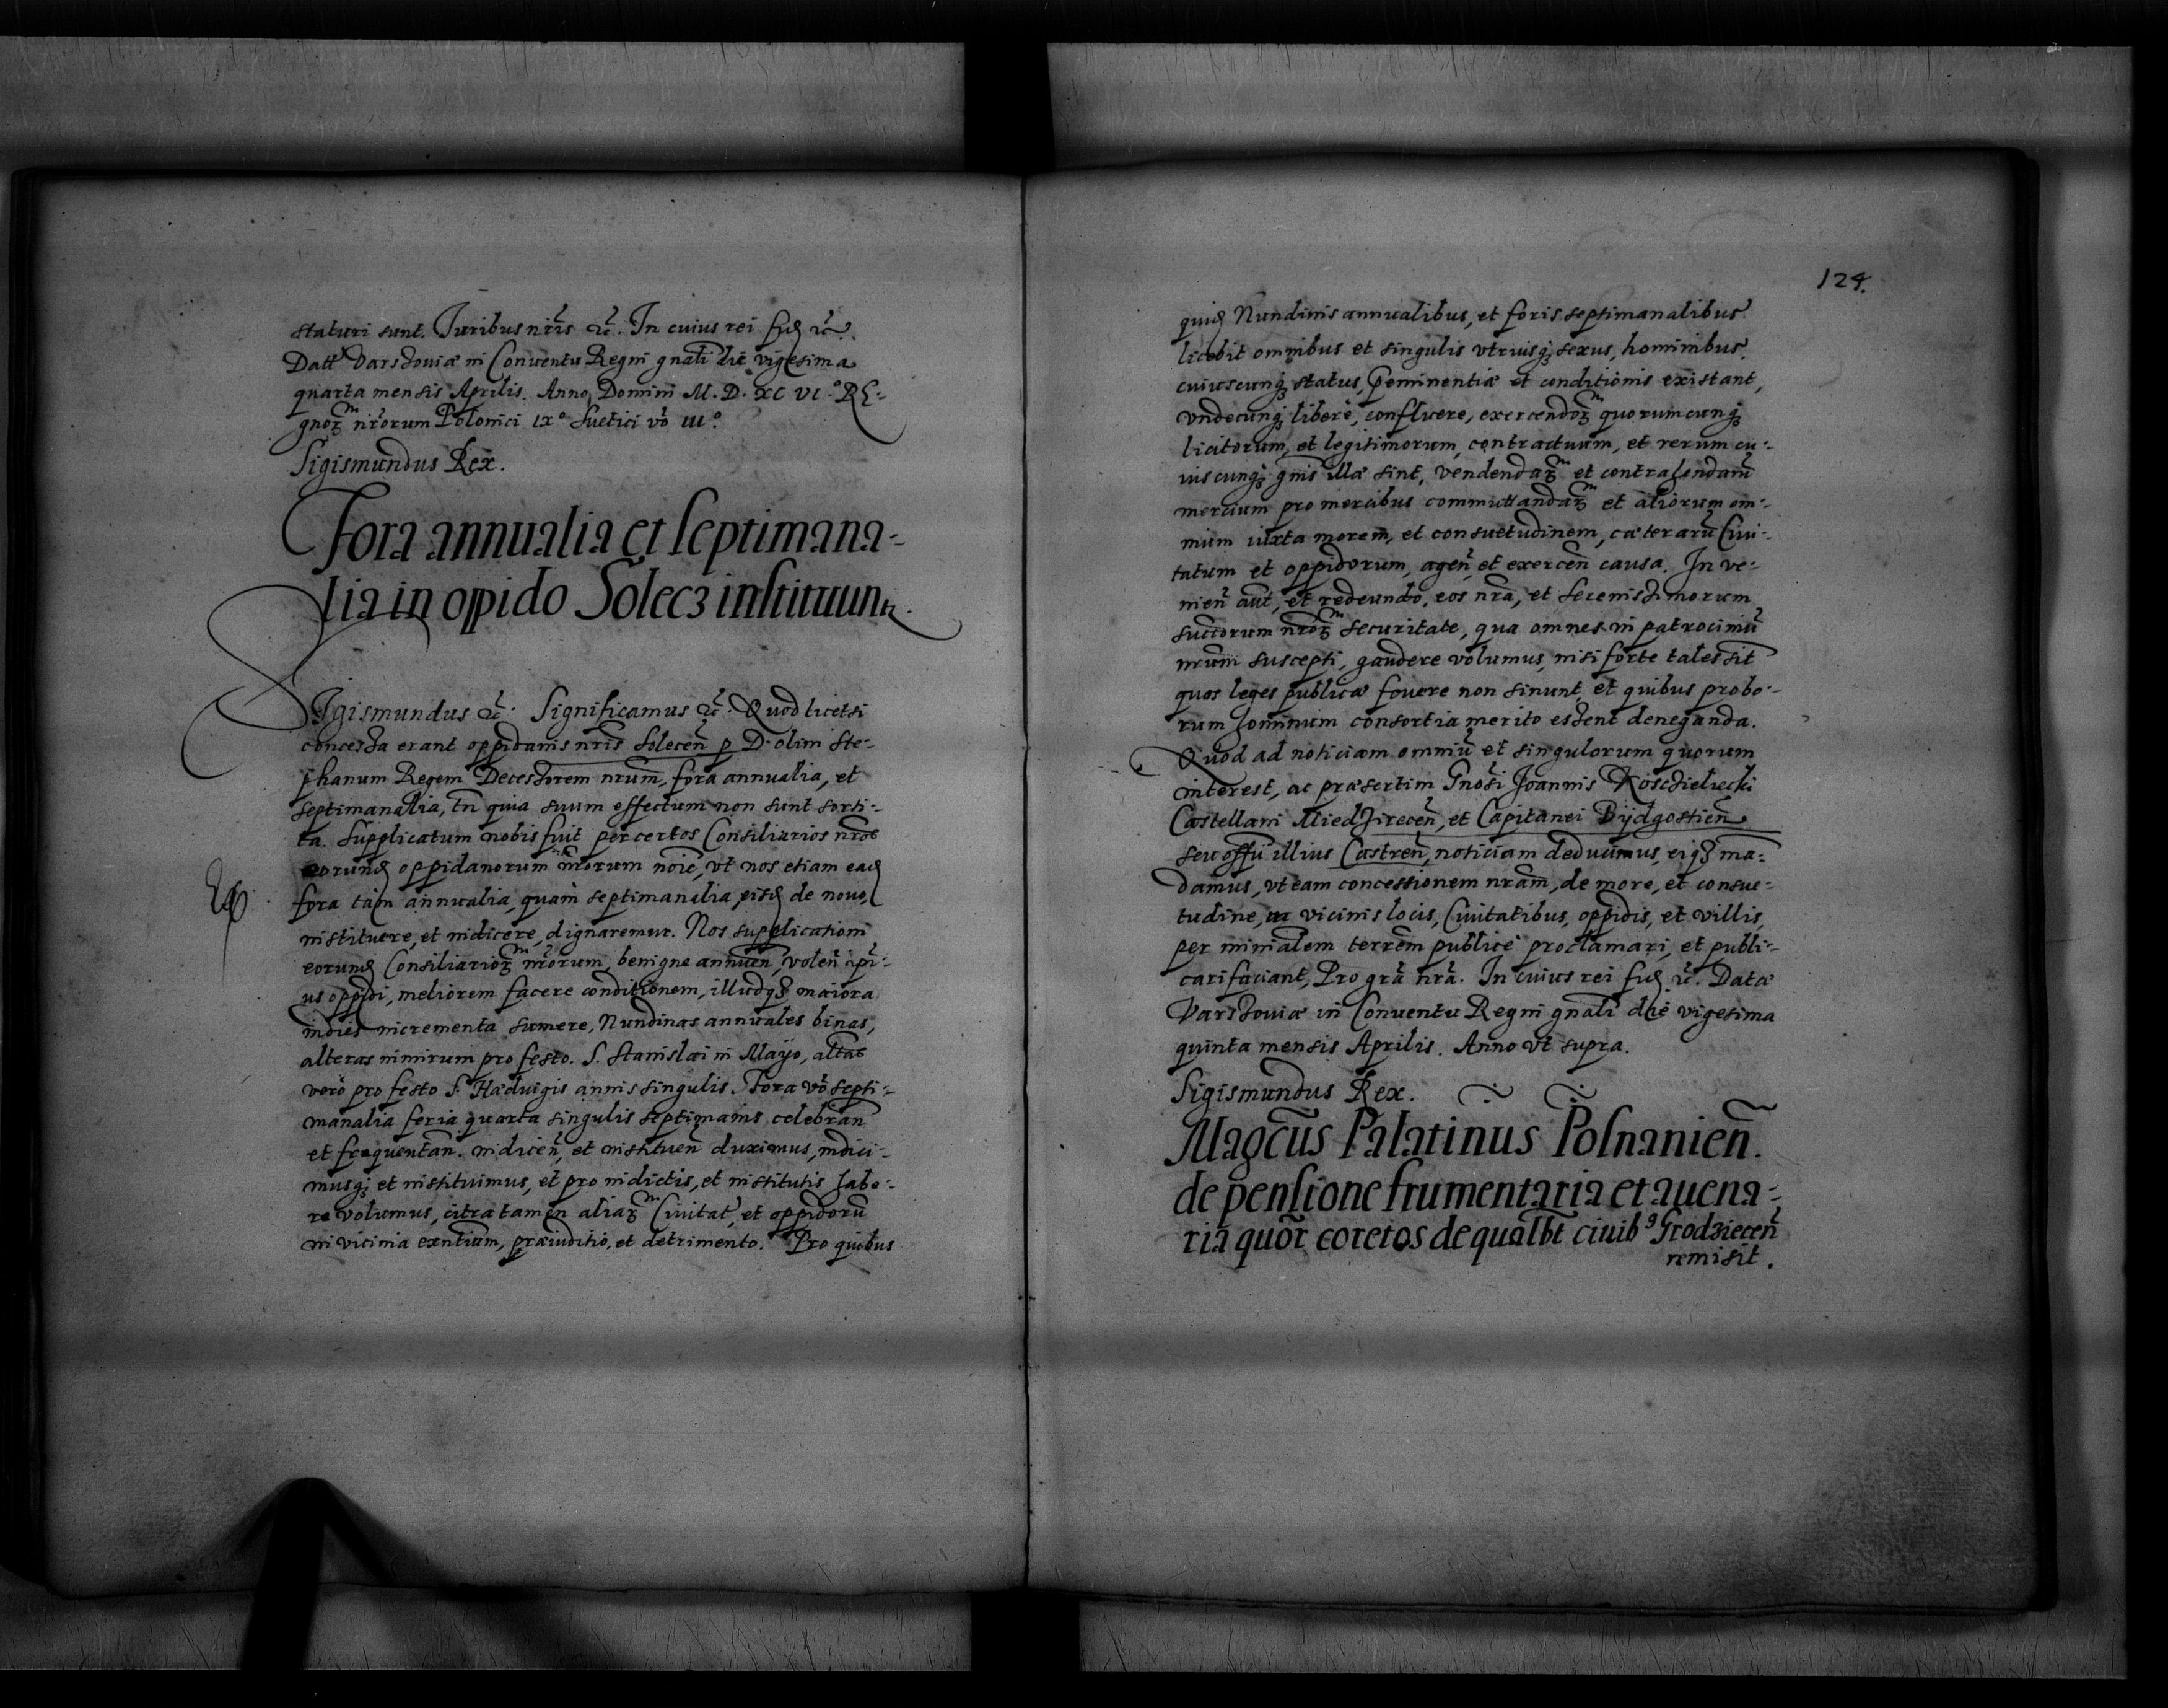 staturi sunt. Juribus nr̃is ꝛc̃. In cuius rei fid ꝛc̃.
Datt Varschoviæ in Conventu Regni gnãli die vigesima
quarta mensis Aprilis. Anno Domini M. D. XC VI.° RE-
gnorꝫ nr̃orum Polonici IX° Suetici vō III°.
Sigismundus Rex.
Fora annualia et septimana-
lia in oppido Solecz instituunt.
Sigismundus ꝛc̃. Significamus ꝛc̃. Quod licet si
concessa erant oppidanis nr̃is Solecen̄ p D. olim Ste-
phanum Regem Decessorem nr̃um, fora annualia, et
septimanalia, tn̄ quia suum effectum non sunt sorti-
ta. Supplicatum nobis fuit per certos Consiliarios nr̃os
eorund oppidanorum nr̃orum noīe, vt nos etiam ead
fora tam annualia, quam septimanalia, de novo
instituere, et indicere, dignaremur. Nos supplicationi
eorund Consiliariorꝫ nr̃orum, benigne annuen̄, volen̄ ipī-
us oppidi, meliorem facere conditionem, illudqꝫ maiora
indies incrementa sumere, Nundinas annuales binas,
alteras nimirum pro festo. S. Stanislai in Mayo, altãs
vero pro festo S. Hæduigis annis singulis. Fora vō septi-
manalia feria quarta singulis septimanis celebran̄
et frequentan̄. indicen̄, et instituen̄ duximus, indici-
musqꝫ et instituimus, et pro indictis, et institutis habe-
re volumus, citra tamen aliarꝫ Civitat, et oppidorū
in vicinia exn̄tium, præiuditio, et detrimento. Pro quibus
124.
quid Nundinis annualibus, et foris septimanalibus
licebit omnibus et singulis vtriusqꝫ sexus, hominibus,
cuiuscunqꝫ status, p̄eminentiæ et conditionis existant,
vndecunqꝫ liberè, confluere, exercendorꝫ quorumcunqꝫ
licitorum, et legitimorum, contractuum, et rerum cu-
iuscunqꝫ gn̄is illæ sint, vendendarꝫ et contrahendarū
mercium pro mercibus commuttandarꝫ et aliorum om-
nium iuxta morem, et consuetudinem, cæterarū Civi-
tatum et oppidorum, agen̄, et exercen̄ causa. In ve-
nien̄ aūt, et redeundo, eos nr̃a, et Serenissimorum
succorum nr̃orꝫ securitate, qua omnes in patrociniū
nr̃um suscepti, gaudere volumus, nisi forte tales sīt
quos leges publicæ fovere non sinunt, et quibus probo-
rum hominum consortia merito essent deneganda.
Quod ad noticiam omniū et singulorum quorum
interest, ac præsertim Gnosi Joannis Kosczielecki
Castellani Miedzirecen̄, et Capitanei Bydgostien̄
seu offii illius Castren̄, noticiam deducimus, eiqꝫ ma-
damus, vt eam concessionem nr̃am, de more, et consue-
tudine, in vicinis locis, Civitatibus, oppidis, et villis,
per minālem terrēm publicè proclamari, et publi-
cari faciant, Pro grã nr̃a. In cuius rei fid ꝛc̃. Datæ
Varschoviæ in Conventu Regni gnãli die vigesima
quinta mensis Aprilis. Anno vt supra.
Sigismundus Rex.
Magcūs Palatinus Posnanien̄.
de pensione frumentaria et avena-
ria quōr coretos de qualbt civibꝰ Grodziecen̄
remisit.